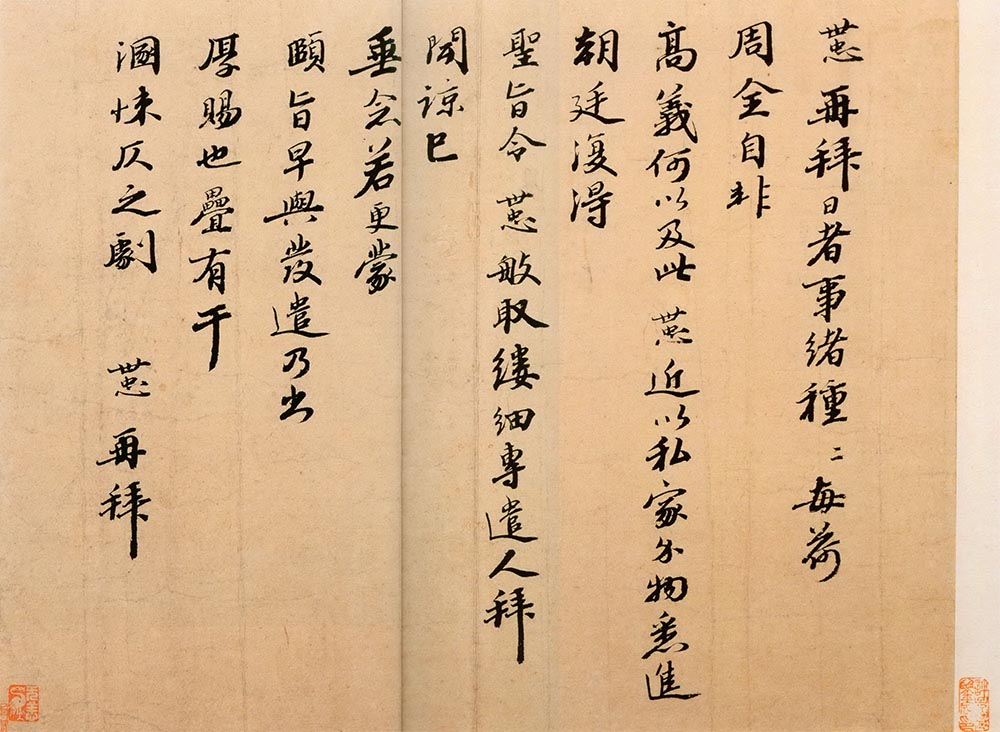 世忠再拜日者事緒種二每荷
周全自非
高義何以及此世忠近以私家分物悉進
朝廷復得
聖旨令世忠敏取縷細專遣人拜
聞諒已
垂念若更蒙
頤旨早與發遣乃出
厚賜也疊有干
溷悚仄之劇世忠再拜